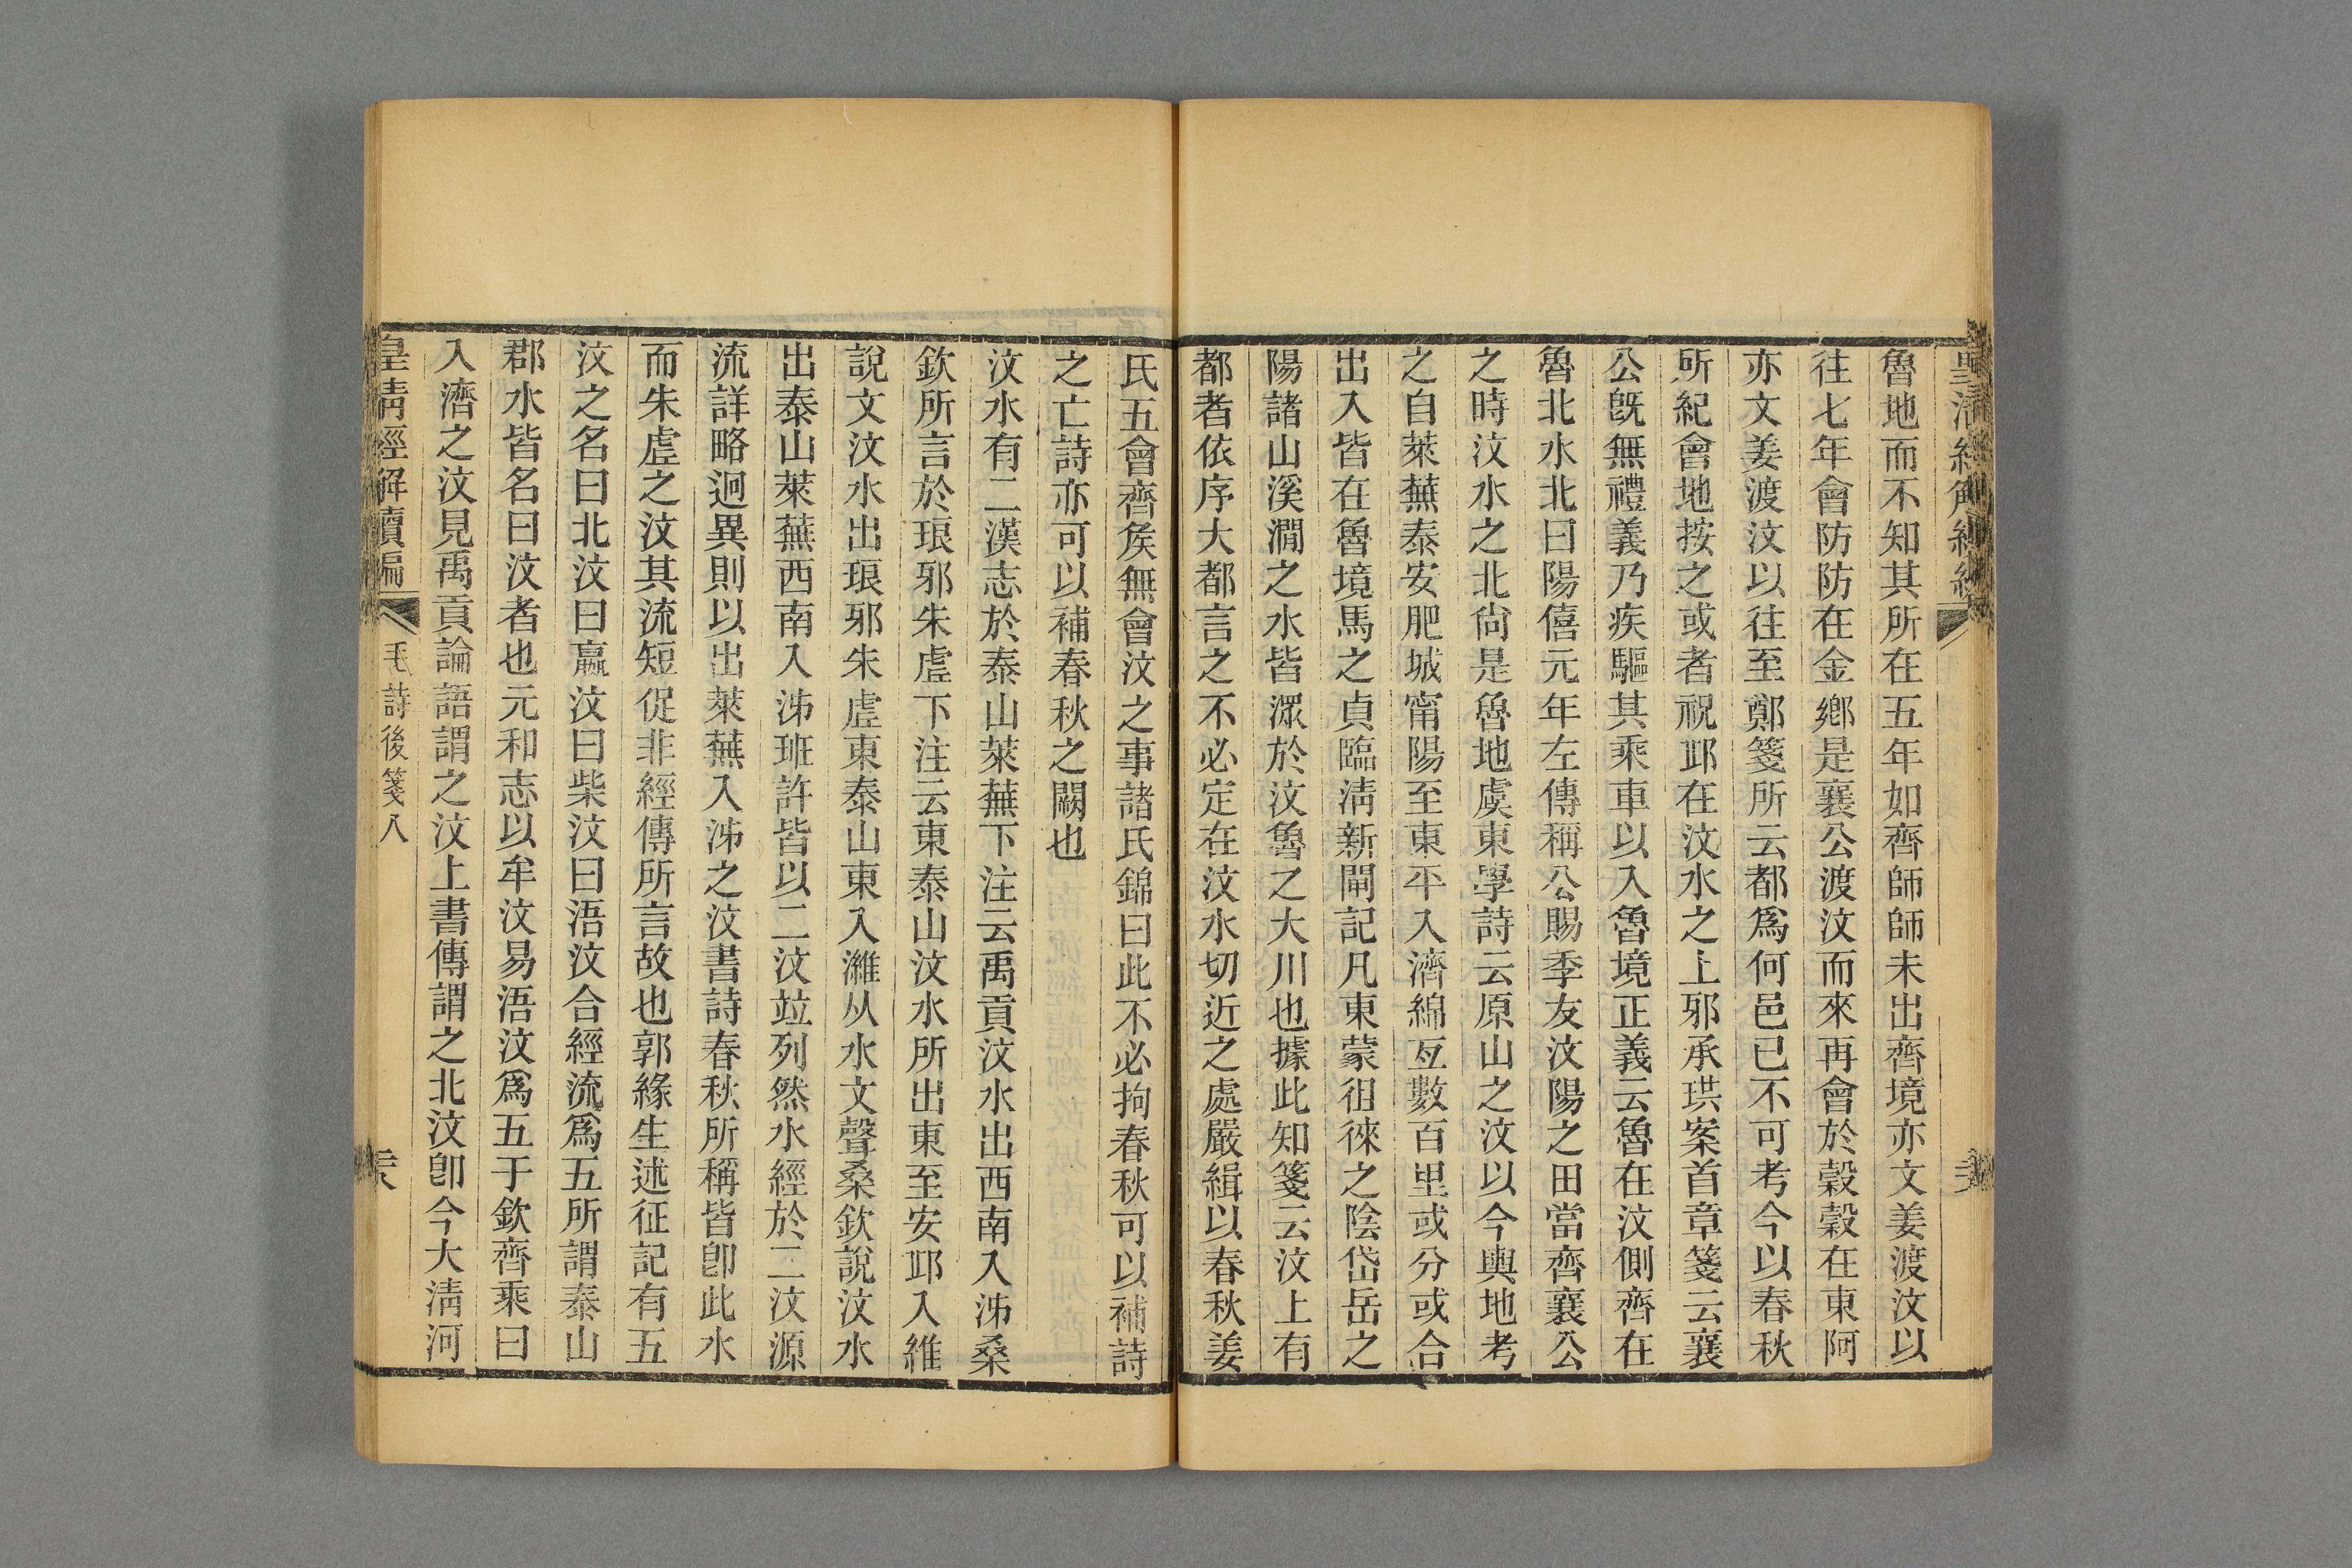 魯地而不知其所在五年如齊師師未出齊境亦文姜渡汶以
往七年會防防在金鄉是襄公渡汶而來再會於穀穀在東阿
亦文姜渡汶以往至鄭箋所云都爲何邑已不可考今以春秋
所紀會地按之或者祝邱在汶水之上邪承珙案首章箋云襄
公旣無禮義乃疾驅其乘車以入魯境正義云魯在汶側齊在
魯北水北曰陽僖元年左傳稱公賜季友汶陽之田當齊襄公
之時汶水之北尙是魯地虞東學詩云原山之汶以今輿地考
之自萊蕪泰安肥城甯陽至東平入濟綿亙數百里或分或合
出入皆在魯境馬之貞臨淸新閘記凡東蒙徂徠之陰岱岳之
陽諸山溪澗之水皆潀於汶魯之大川也據此知箋云汶上有
都者依序大都言之不必定在汶水切近之處嚴緝以春秋姜
氏五會齊矦無會汶之事諸氏錦曰此不必拘春秋可以補詩
之亡詩亦可以補春秋之闕也
汶水有二漢志於泰山萊蕪下注云禹貢汶水出西南入泲桑
欽所言於琅邪朱虛下注云東泰山汶水所出東至安邱入維
說文汶水出琅邪朱虛東泰山東入濰从水文聲桑欽說汶水
出泰山萊蕪西南入泲班許皆以二汶竝列然水經於二汶源
流詳略迥異則以出萊蕪入泲之汶書詩春秋所稱皆卽此水
而朱虛之汶其流短促非經傳所言故也郭緣生述征記有五
汶之名曰北汶曰嬴汶曰柴汶曰浯汶合經流爲五所謂泰山
郡水皆名曰汶者也元和志以牟汶易浯汶爲五于欽齊乘曰
入濟之汶見禹貢論語謂之汶上書傳謂之北汶卽今大淸河
皇淸經解續編 毛詩後箋八